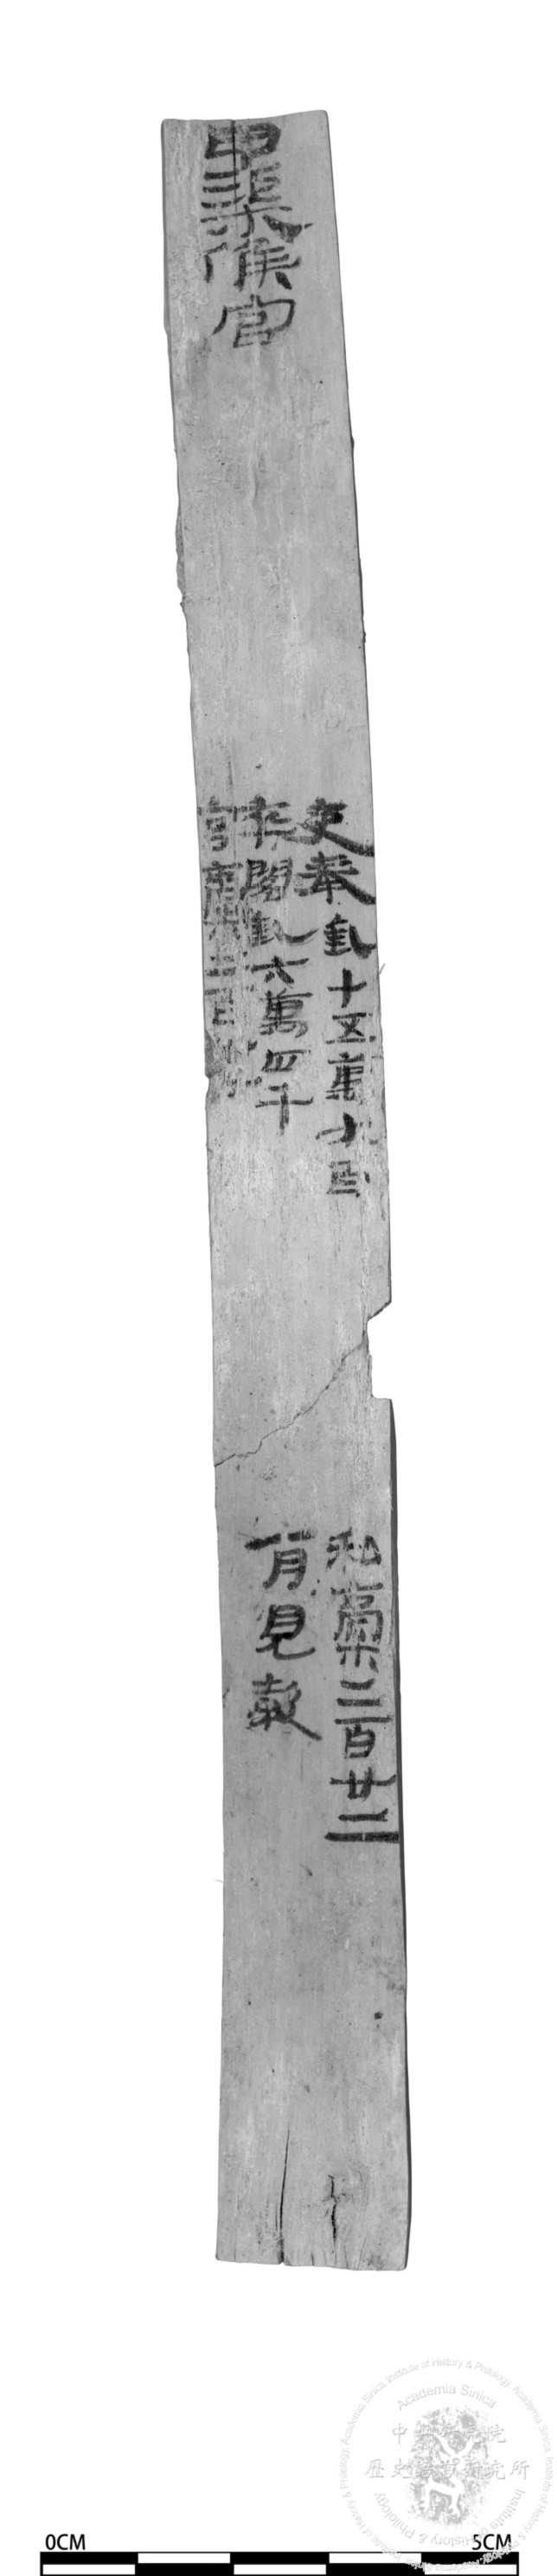 甲渠候官
吏奉錢十五萬九百
茭閣錢六萬四千
官茭
私稾三百廿二
一月見穀
0CM
5CM
中央研究院
歷史語言研究所
Academia Sinica
Institute of History & Philology